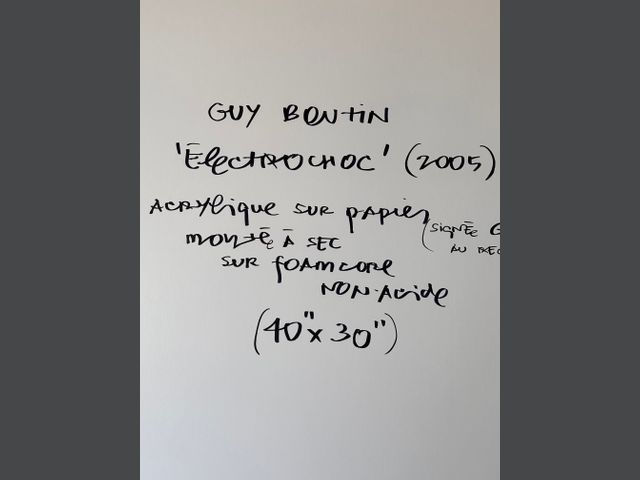 GUY BOUTIN
'Électrochoc' (2005)
Acrylique sur papier
(signée
au
monté à sec
sur foamcore
non-acide
(40" x 30")